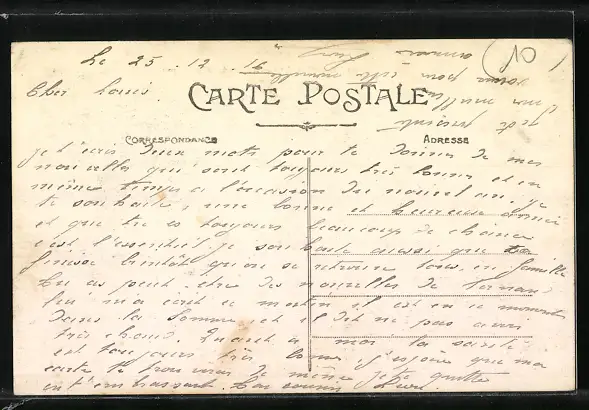 Le 25 . 12 . 16
Cher Louis.
CARTE POSTALE
CORRESPONDANCE
ADRESSE
je t'écris deux mots pour te donner de mes
nouvelles qui sont toujours très bonnes et en
même temps a l'occasion du nouvel an, je
te souhaite, une bonne et heureuse année
et que tu es toujours beaucoup de chance
c'est l'essentiel je souhaite aussi que
finisse bientôt qu'on se retrouve tous en famille
tu as peut-être des nouvelles de
lui m'a écrit ce matin il est en ce moment
dans la Somme et il dit ne pas avoir
très beau. Quant a moi la santé
est toujours très bonne j'espère que ma
carte te trouvera de même je te quitte
en t'embrassant. Ton cousin
je te présente
mes meilleurs
vœux pour cette nouvelle
année
10